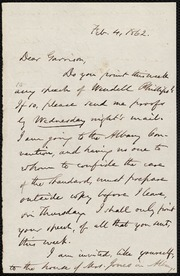 Feb. 4, 1862.
Dear Garrison,
Do you print this week
any speech of Wendell Phillips's?
If so, please send me proofs
by Wednesday night's mail.
I am going to the Albany Con-
vention, and having no one to
whom to confide the case
of the Standard, must prepare
outside copy before I leave,
on Thursday. I shall only print
your speech, of all that you sent,
this week.
I am invited, like yourself,
to the house of Mrs. Jones in Alba-